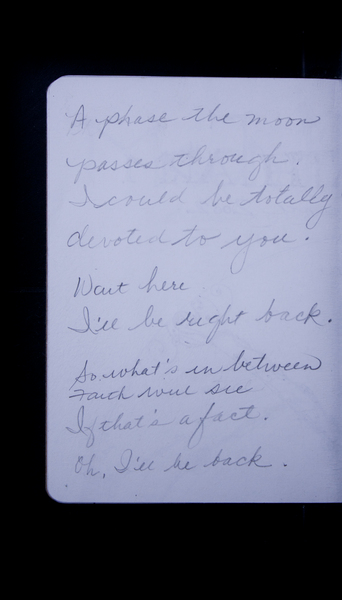 A phase the moon
passes through.
I could be totally
devoted to you.
Wait here
I'll be right back.
So what's in between
Faith will see
If that's a fact.
Oh, I'll be back.